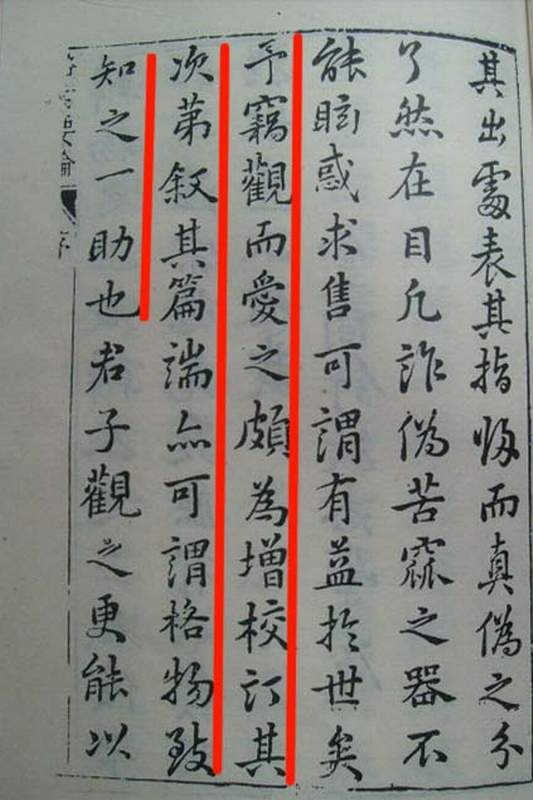 其出處表其指歸而真偽之分
了然在目凡詐偽苦窳之器不
能眩惑求售可謂有益於世矣
予竊觀而愛之頗為增校訂其
次第叙其篇端亦可謂格物致
知之一助也君子觀之更能以
要論